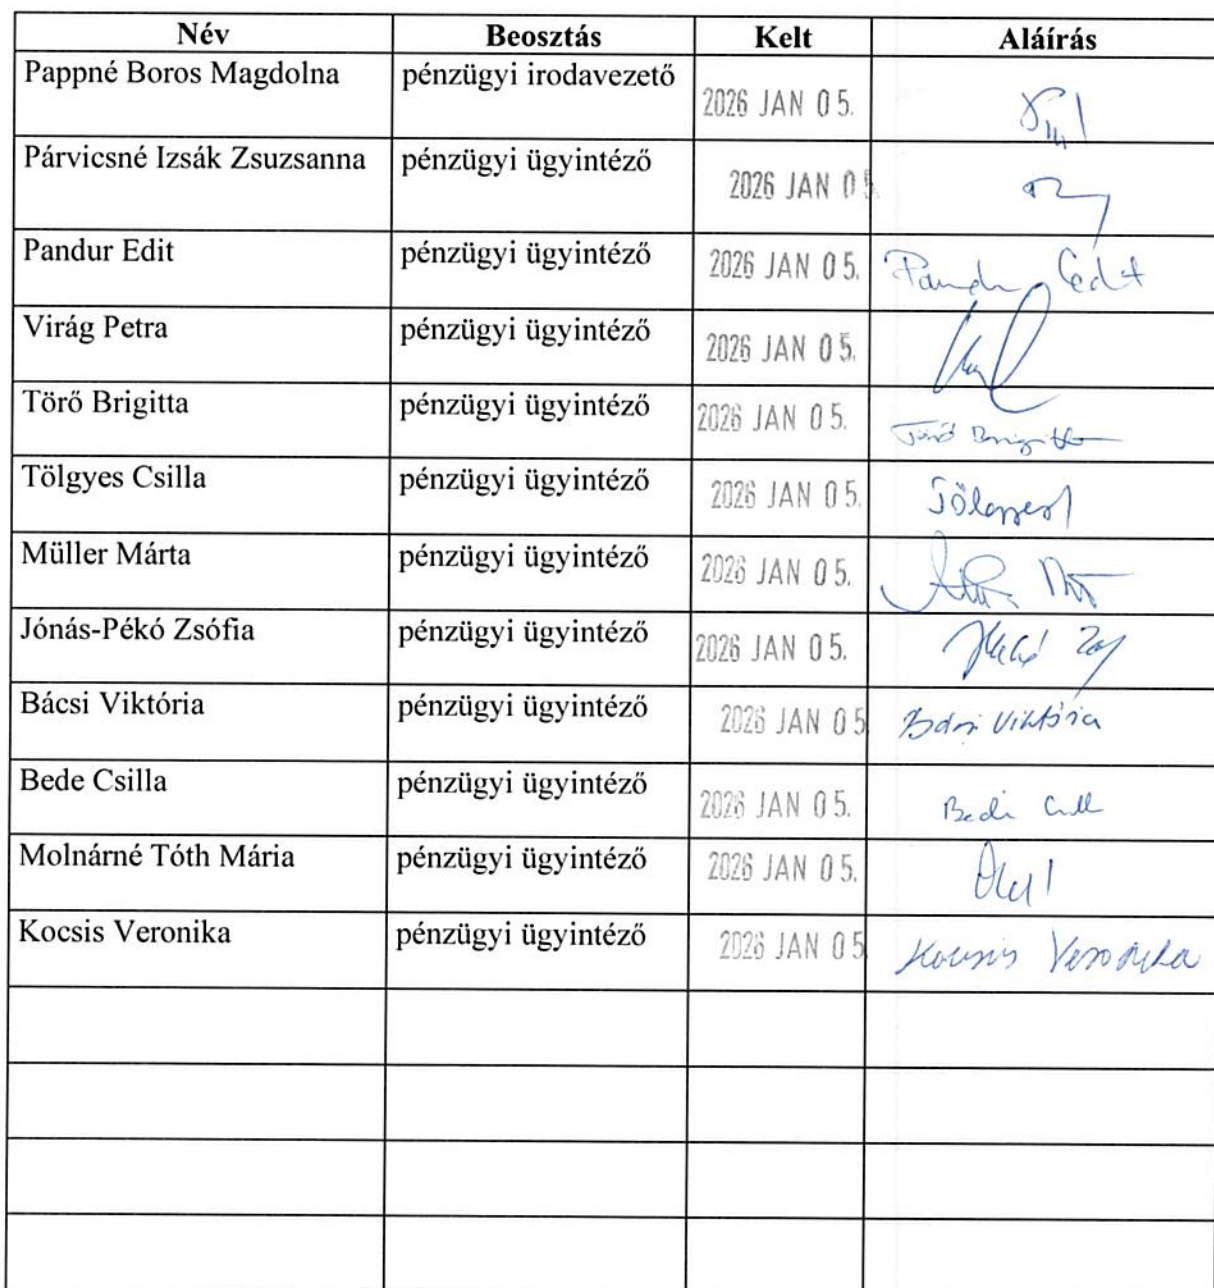 Név Beosztás Kelt Aláírás
Pappné Boros Magdolna pénzügyi irodavezető 2026 JAN 05.
Párvicsné Izsák Zsuzsanna pénzügyi ügyintéző 2026 JAN 05.
Pandur Edit pénzügyi ügyintéző 2026 JAN 05. Pandur Edit
Virág Petra pénzügyi ügyintéző 2026 JAN 05.
Törő Brigitta pénzügyi ügyintéző 2026 JAN 05. Törő Brigitta
Tölgyes Csilla pénzügyi ügyintéző 2026 JAN 05.
Müller Márta pénzügyi ügyintéző 2026 JAN 05.
Jónás-Pékó Zsófia pénzügyi ügyintéző 2026 JAN 05.
Bácsi Viktória pénzügyi ügyintéző 2026 JAN 05 Bácsi Viktória
Bede Csilla pénzügyi ügyintéző 2026 JAN 05. Bede
Molnárné Tóth Mária pénzügyi ügyintéző 2026 JAN 05.
Kocsis Veronika pénzügyi ügyintéző 2026 JAN 05 Kocsis Veronika